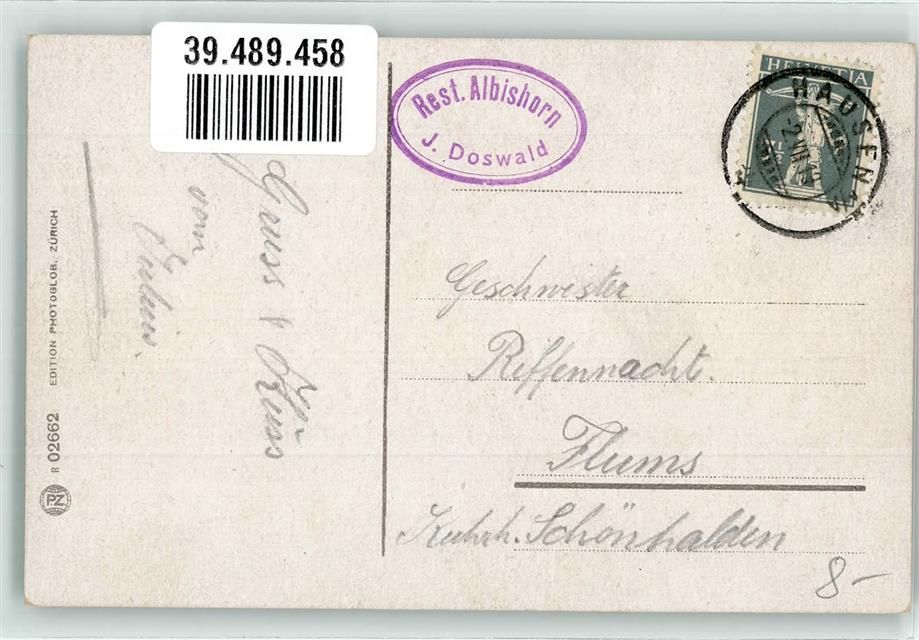 39.489.458
Rest. Albishorn
J. Doswald
HELVETIA
HAUSEN
Gruss & Kuss
vom
Geschwister
Riffennacht.
Flums
Kurh. Schönhalden
8-
EDITION PHOTOGLOB. ZÜRICH
B 02662
PZ